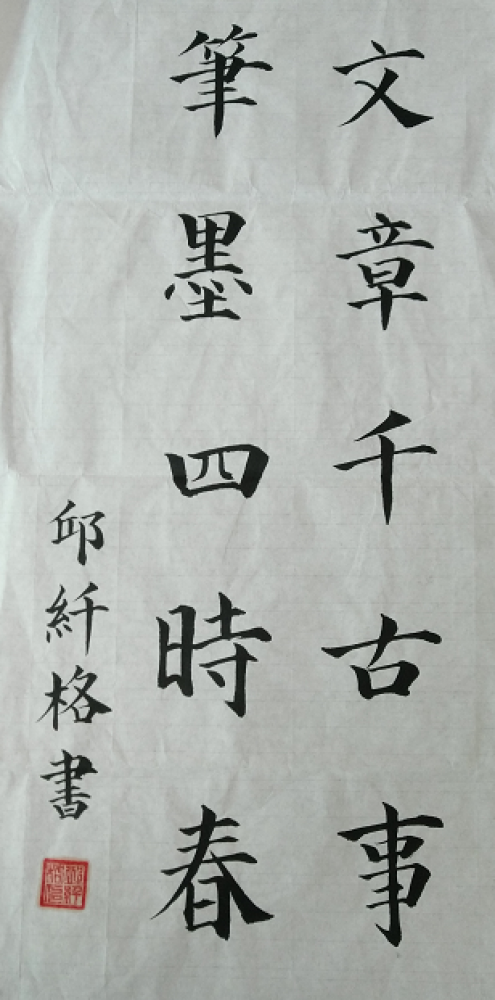 文章千古事
筆墨四時春
邱紆格書